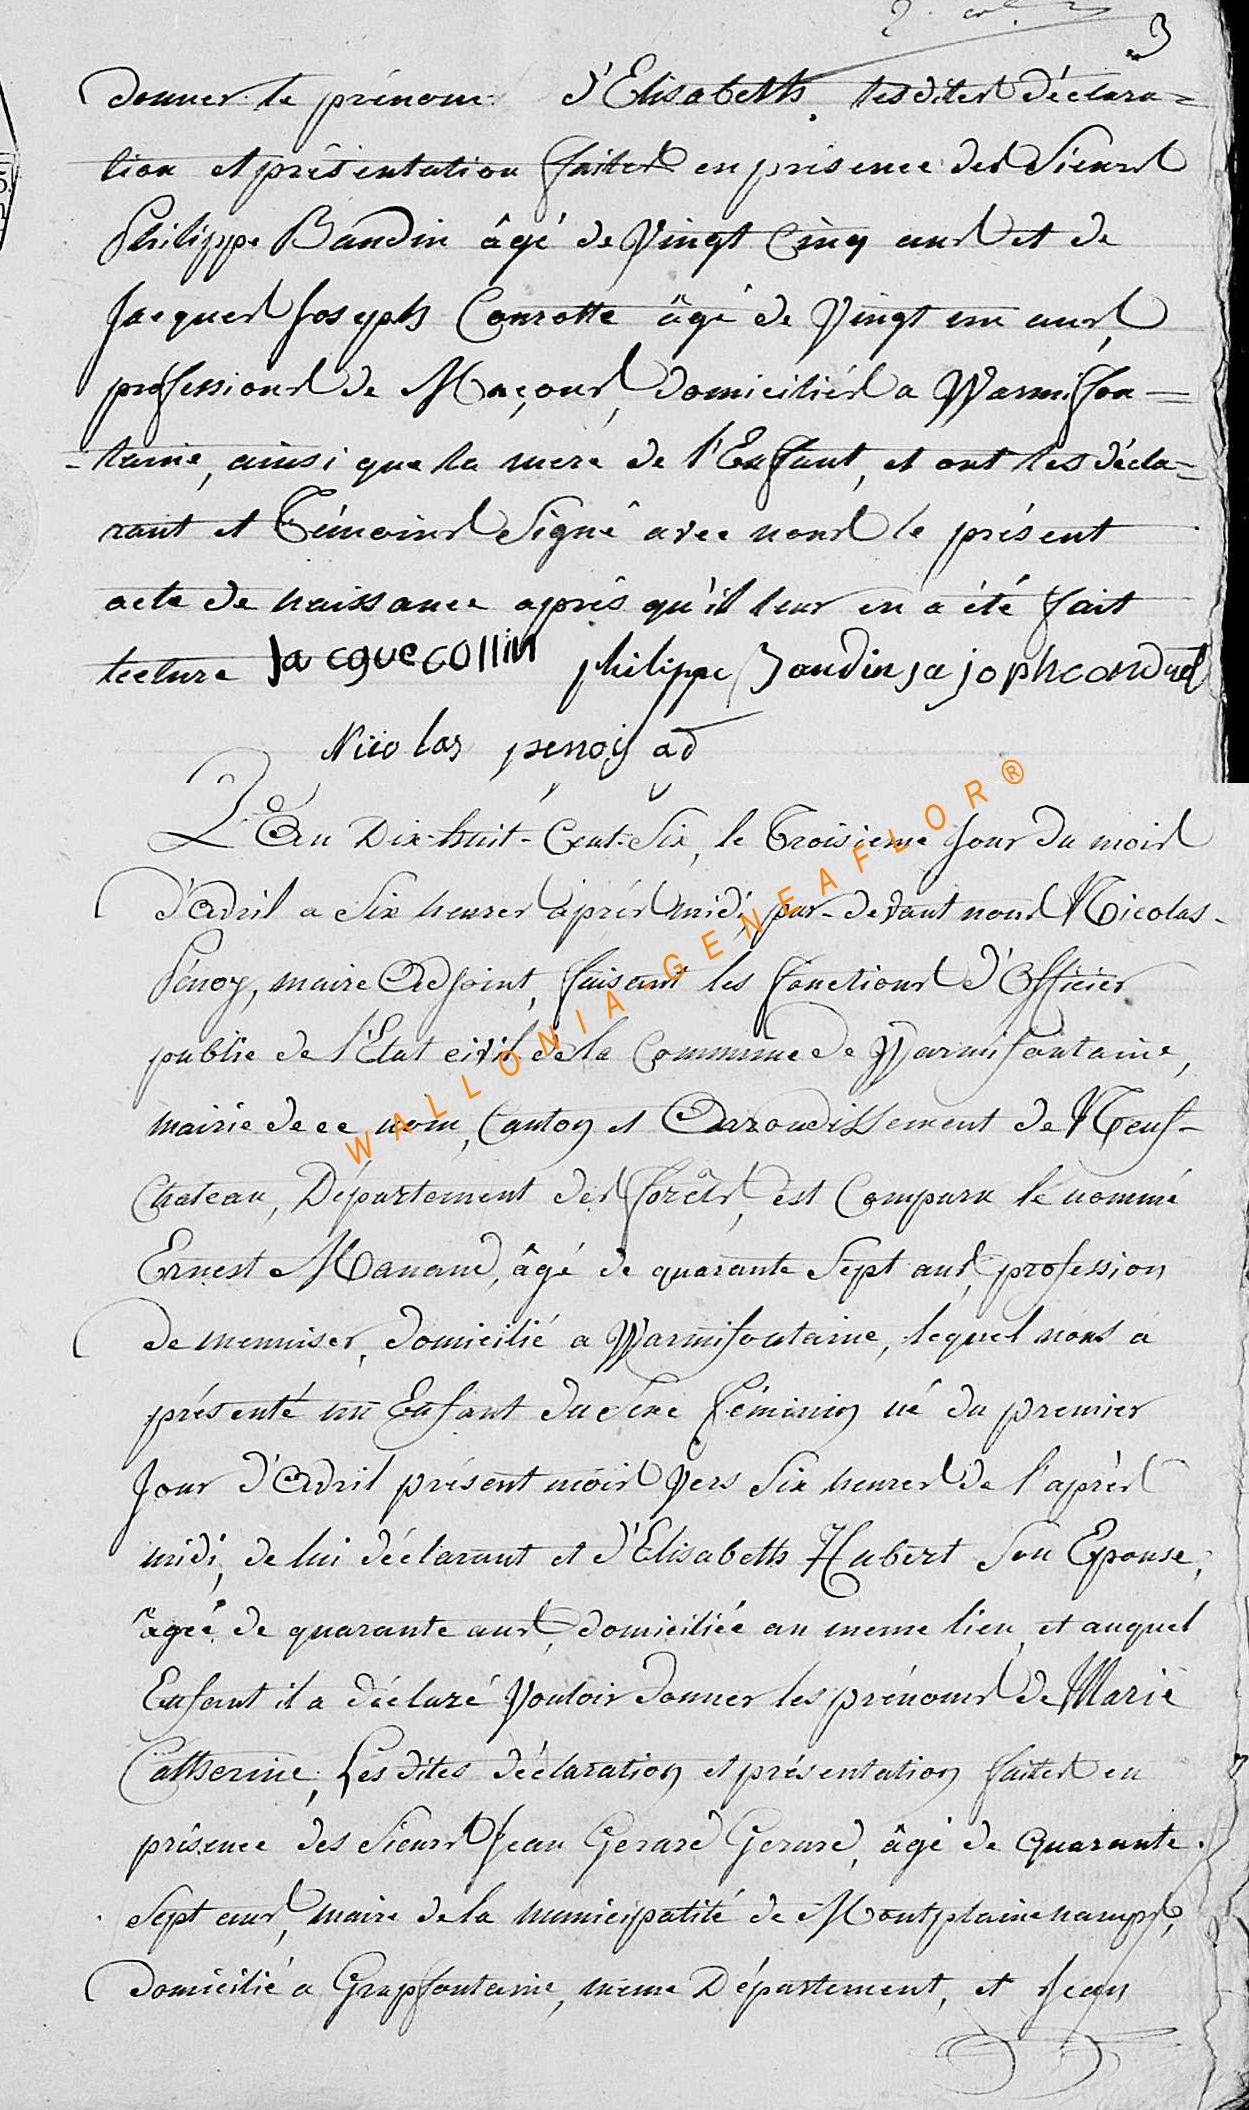 3
donner le prénom d'Elisabeth. lesdites déclara=
tion et présentation faites en présence des Sieurs
Philippe Baudin âgé de Vingt Cinq ans et de
Jacques Joseph Conrotte âgé de Vingt un ans,
professions de Maçons, domiciliés a Warmifon=
-taine, ainsi que la mere de l'Enfant, et ont les décla=
rant et Témoins Signé avec nous le présent
acte de naissance après qu'il leur en a été fait
lecture Jacque collin philippe Baudin ja joph
Nicolas penoy ad
L'An Dix-huit-Cent-Six, le Troisieme Jour du mois
d'Avril a Six heures après midi, par-devant nous Nicolas
Pénoy, maire Adjoint, faisant les fonctions d'Officier
public de l'Etat civil de la Commune de Warmifontaine,
mairie de ce nom, Canton et Arrondissement de Neuf-
Chateau, Département des forêts, est Comparu le nommé
Ernest Manand, âgé de quarante Sept ans, profession
de menuiser, domicilié a Warmifontaine, lequel nous a
présenté un Enfant du séxe féminin né du premier
Jour d'Avril présent mois Vers Six heures de l'après
midi, de lui déclarant et d'Elisabeth Hubert Son Epouse,
âgée de quarante ans, domiciliée au meme lieu, et auquel
Enfant il a déclaré Vouloir donner les prénoms de Marie
Catherine. Les dites déclaration et présentation faites en
présence des Sieurs Jean Gerard Gerard, âgé de Quarante
Sept ans, maire de la municipalité de Montplainchamps,
domicilié a Grapfontaine, meme Département, et Jean
WALLONIA-GENEAFLOR®